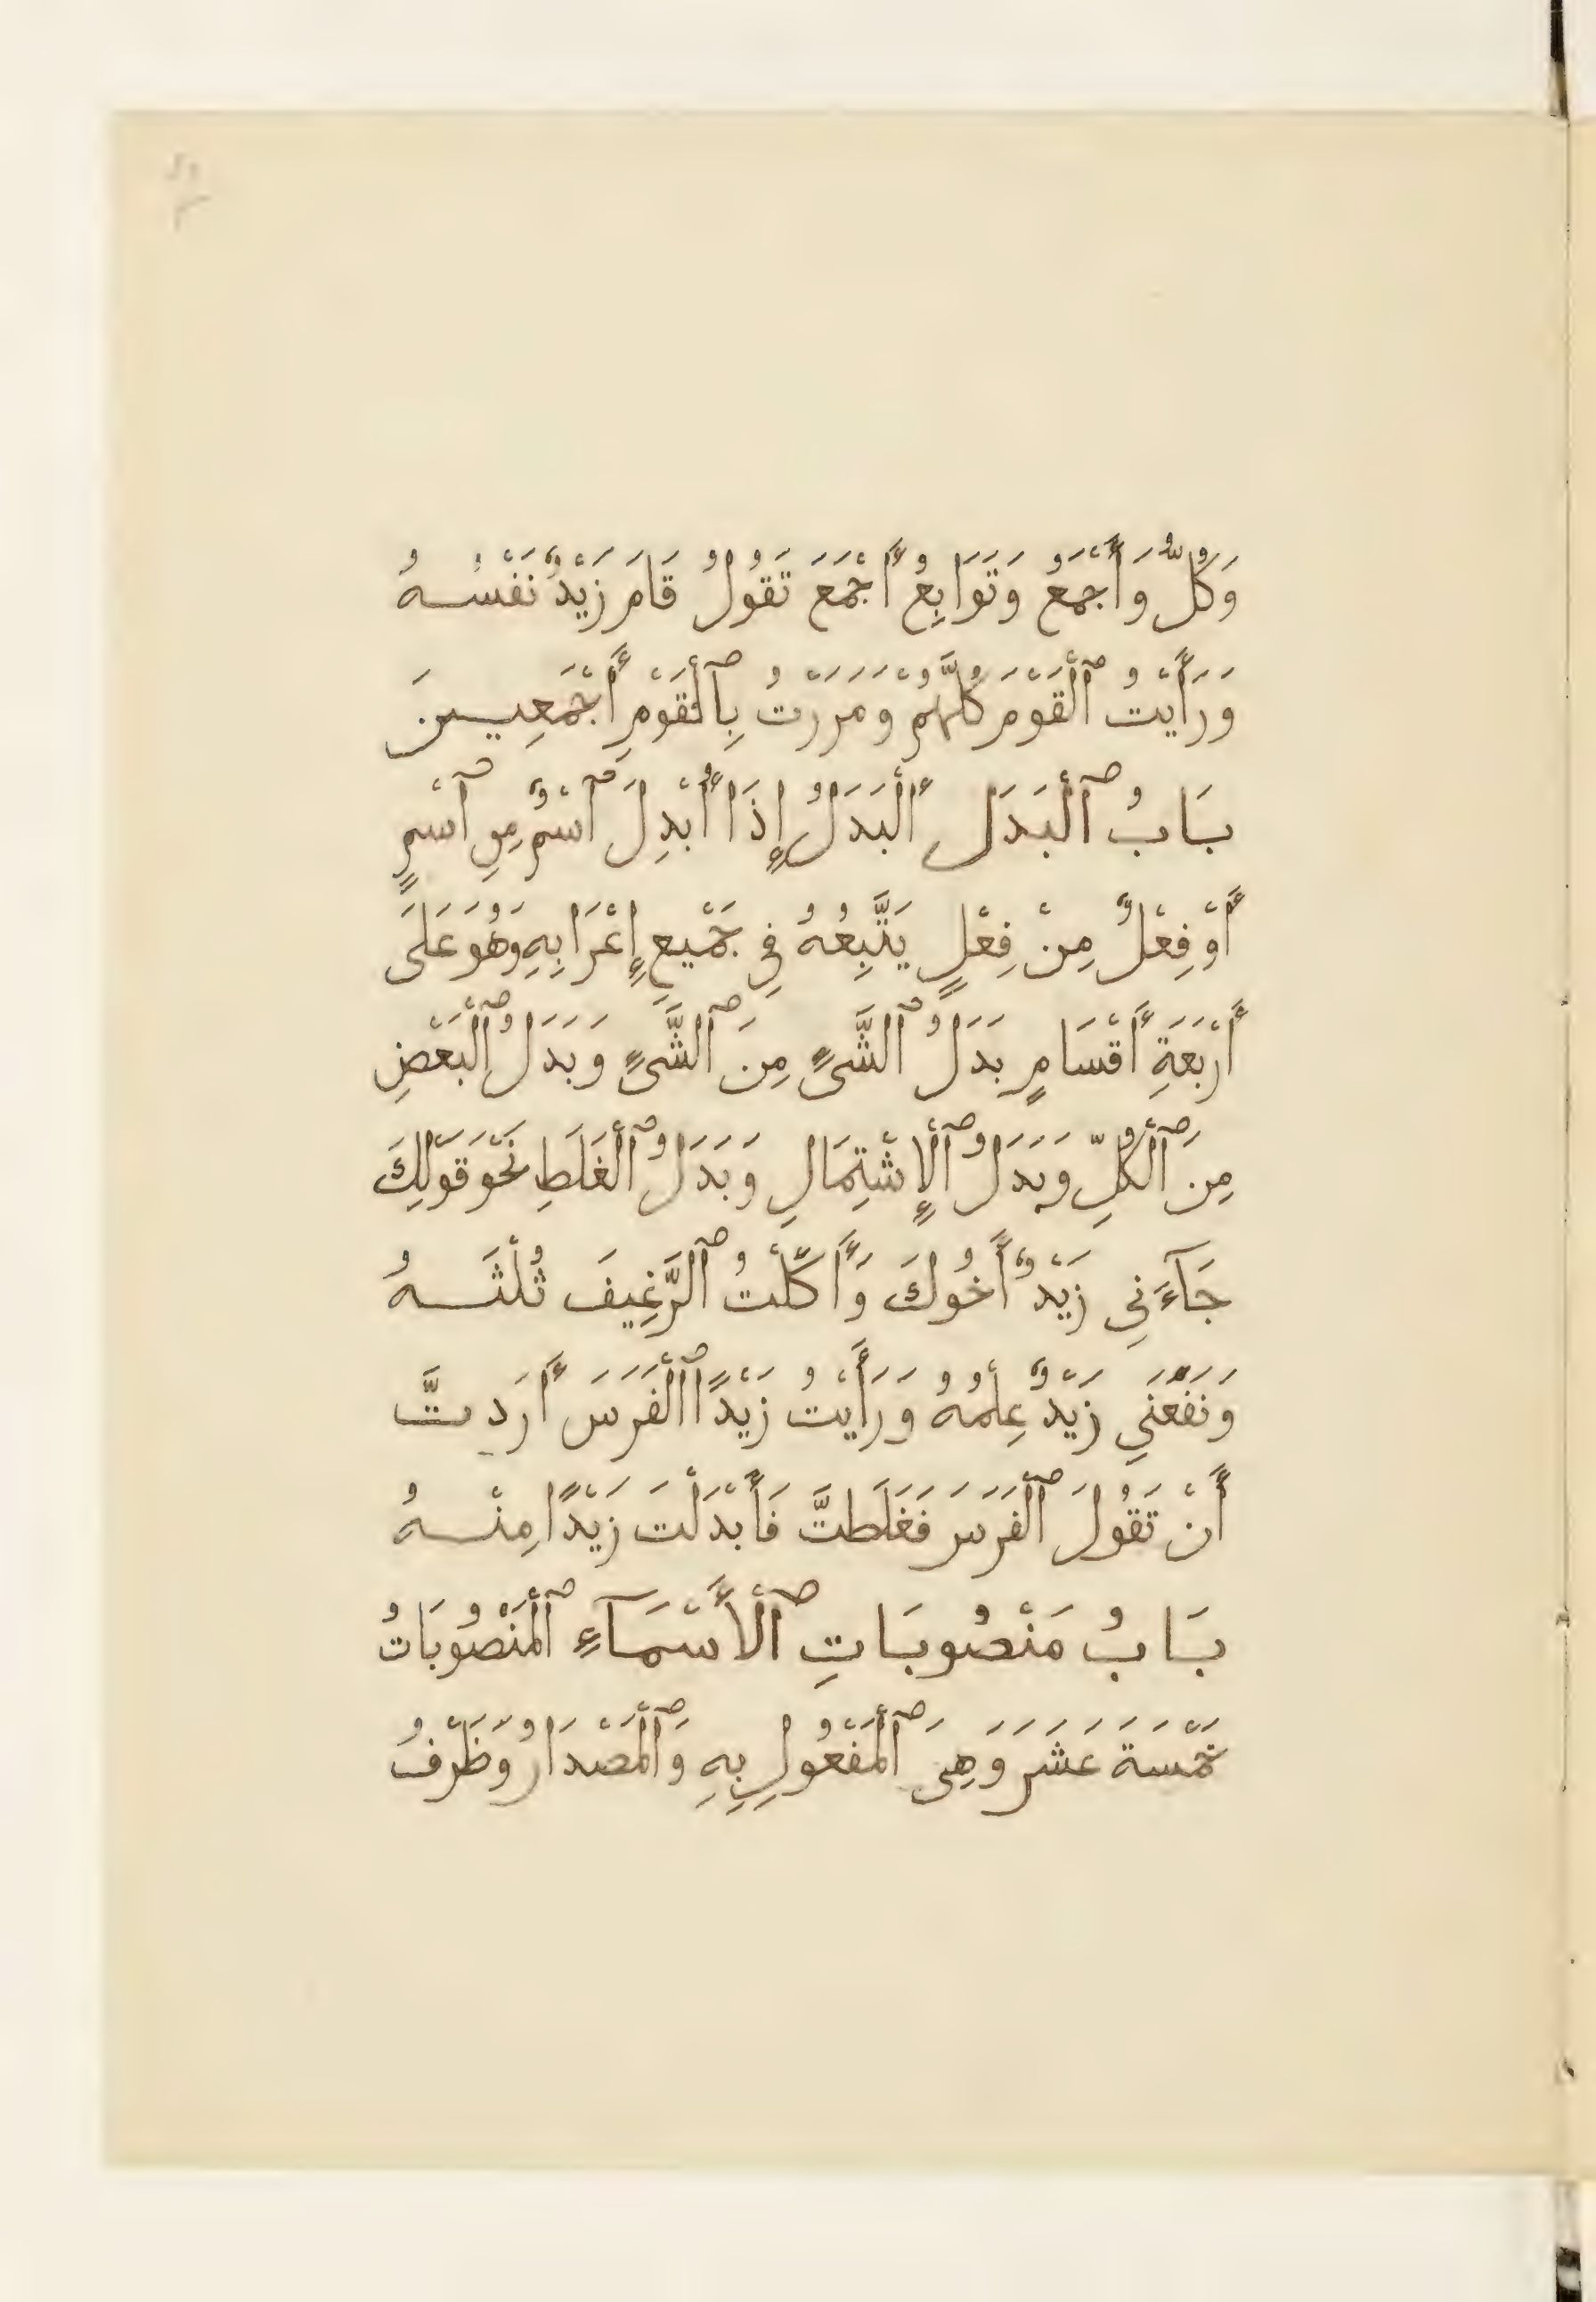 وَكُلٌّ وَأَجْمَعُ وَتَوَابِعُ أَجْمَعَ تَقُولُ قَامَ زَيْدٌ نَفْسُهُ
وَرَأَيْتُ ٱلْقَوْمَ كُلَّهُمْ وَمَرَرْتُ بِٱلْقَوْمِ أَجْمَعِينَ
بَابُ ٱلْبَدَلِ أَلْبَدَلُ إِذَا أُبْدِلَ ٱسْمٌ مِنِ ٱسْمٍ
أَوْ فِعْلٌ مِنْ فِعْلٍ يَتَّبِعُهُ فِي جَمْيعِ إِعْرَابِهِ وَهُوَ عَلَى
أَرْبَعَةِ أَقْسَامٍ بَدَلُ ٱلشَّىْءٍ مِنَ ٱلشَّىْءٍ وَبَدَلُ ٱلْبَعْضِ
مِنَ ٱلْكُلِّ وَبَدَلُ ٱلْإِشْتِمَالِ وَبَدَلُ ٱلْغَلَطِ نَحْوَ قَوْلِكَ
جَآءَنِي زَيْدٌ أَخُوكَ وَأَكَلْتُ ٱلرَّغِيفَ ثُلْثَهُ
وَنَفَعَنِي زَيْدٌ عِلْمُهُ وَرَأَيْتُ زَيْدًا ٱلْفَرَسَ أَرَدتَّ
أَنْ تَقُولَ ٱلْفَرَسَ فَغَلَطتَّ فَأَبْدَلْتَ زَيْدًا مِنْهُ
بَابُ مَنْصُوبَاتِ ٱلْأَسْمَآءِ ٱلْمَنْصُوبَاتُ
خَمْسَةَ عَشَرَ وَهِىَ ٱلْمَفْعُولِ بِهِ وَٱلْمَصْدَارُ وَظَرْفُ